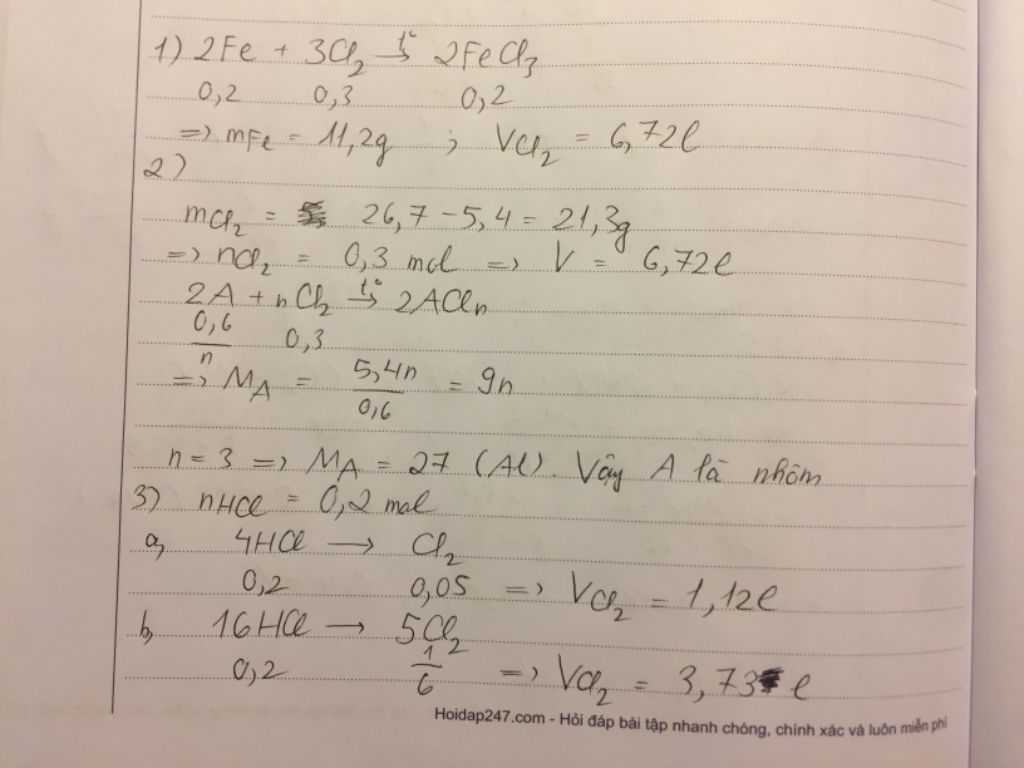 1) 2Fe + 3Cl₂ →t° 2FeCl₃
0,2 0,3 0,2
=> mFe = 11,2g ; VCl₂ = 6,72l
2)
mCl₂ = 26,7 - 5,4 = 21,3g
=> nCl₂ = 0,3 mol => V = 6,72l
2A + nCl₂ →t° 2ACln
0,6/n 0,3
=> MA = 5,4n/0,6 = 9n
n = 3 => MA = 27 (Al). Vậy A là nhôm
3) nHCl = 0,2 mol
a, 4HCl → Cl₂
0,2 0,05 => VCl₂ = 1,12l
b, 16HCl → 5Cl₂
0,2 1/6 => VCl₂ = 3,73 l
Hoidap247.com - Hỏi đáp bài tập nhanh chóng, chính xác và luôn miễn phí